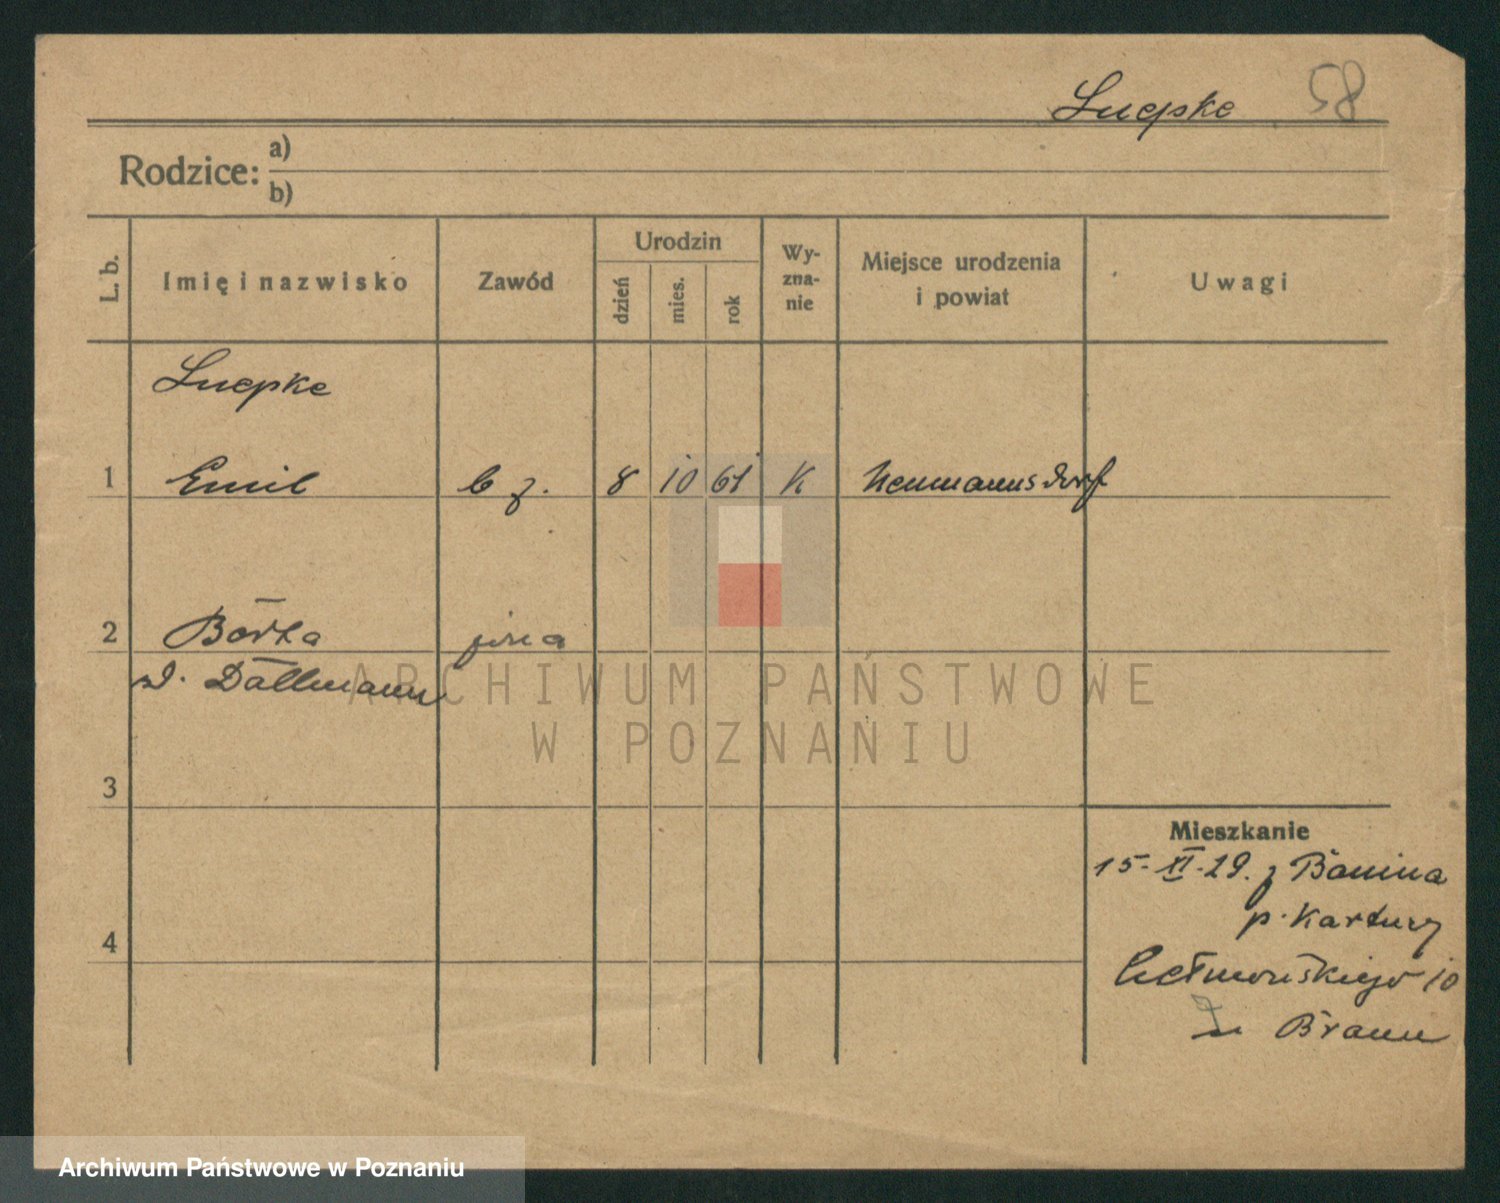 Luepke 58
Rodzice: a)
b)
L. b. Imię i nazwisko Zawód Urodzin dzień mies. rok Wy-zna-nie Miejsce urodzenia i powiat Uwagi
Luepke
1 Emil b z. 8 10 61 K Neumannsdorf
2 Börta
d. Dällmann
3
Mieszkanie
15-XI-29. z Banina
p. Kartuzy
4
Chełmońskiego 10
Braun
ARCHIWUM PAŃSTWOWE
W POZNANIU
Archiwum Państwowe w Poznaniu